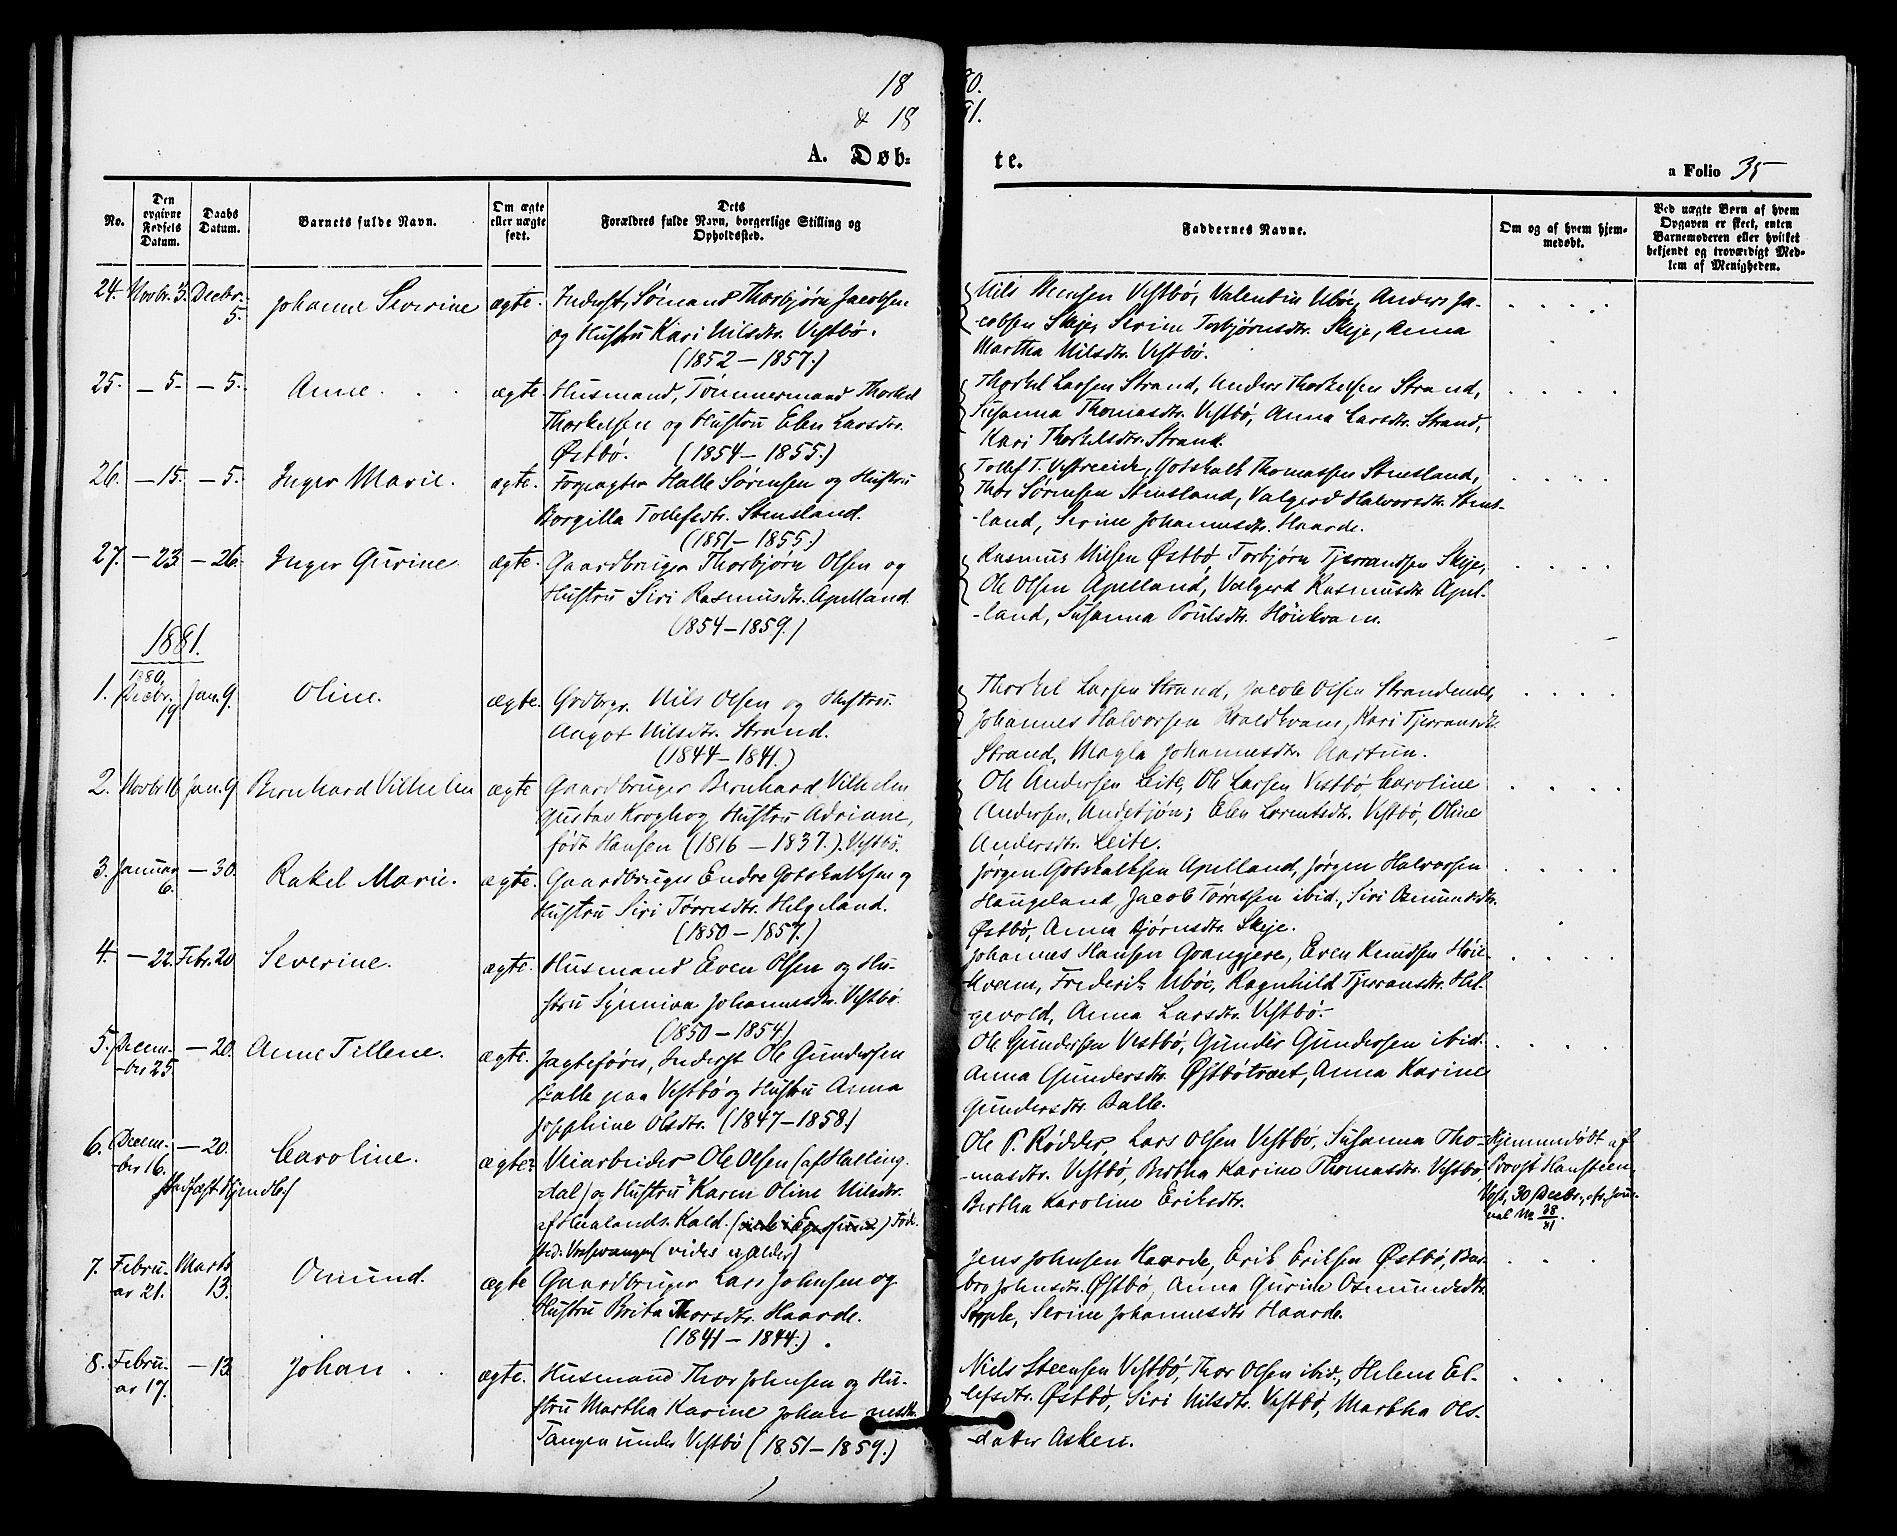 18 80.
& 18 81.
A. Døb- te.
a Folio 35
No.
Den opgivne Fødsels Datum.
Daabs Datum.
Barnets fulde Navn.
Om ægte eller uægte født.
Dets Forældres fulde Navn, borgerlige Stilling og Opholdssted.
Faddernes Navne.
Om og af hvem hjemmedøbt.
Ved uægte Børn af hvem Opgaven er skeet, enten Barnemoderen eller hvilket bekjendt og troværdigt Medlem af Menigheden.
24. Novbr. 3. Decbr. 5. Johanne Severine ægte. Inderst, Sømand Thorbjørn Jacobsen
og Hustru Kari Nilsdtr. Vestbø.
(1852 – 1857.)
Nils Stensen Vestbø, Valentin Ubøe, Anders Ja-
cobsen Skeje, Serine Torbjørnsdtr. Skeje, Anna
Martha Nilsdtr. Vestbø.
25. – 5. – 5. Anne. ægte. Husmand, Tømmermand Thorkel
Thorkelsen og Hustru Elen Larsdtr.
Østbø. (1854 – 1855.)
Thorkel Larsen Strand, Anders Thorkelsen Strand,
Susanna Thomasdtr. Vestbø, Anna Larsdtr. Strand,
Kari Thorkelsdtr. Strand.
26. – 15. – 5. Inger Marie. ægte. Forpagter Halle Sørensen og Hustru
Borgilla Tollefsdtr. Stensland.
(1851 – 1855.)
Tollef T. Vestreeide, Gotskalk Thomassen Stensland,
Thor Sørensen Stensland, Valgerd Halvorsdtr. Stens-
-land, Serine Johannesdtr. Haarde.
27. – 23 – 26. Inger Gurine ægte. Gaardbruger Thorbjørn Olsen og
Hustru Siri Rasmusdtr. Apelland.
(1854 – 1859.)
Rasmus Nilsen Østbø, Torbjørn Tjerrandsen Skeje,
Ole Olsen Apelland, Valgerd Rasmusdtr. Apel-
-land, Susanna Poulsdtr. Høiekvam.
1881.
1. 1880. Decbr. 19 Jan. 9. Oline. ægte. Grdbrgr. Nils Olsen og Hustru
Angot Nilsdtr. Strand.
(1844 – 1841.)
Thorkel Larsen Strand, Jacob Olsen Strandende,
Johannes Halvorsen Roaldkvam, Kari Tjerransdtr.
Strand, Magla Johannesdtr. Aartun.
2. Novbr 16 Jan. 9 Bernhard Vilhelm ægte Gaardbruger Bernhard Vilhelm
Gustav Krogh og Hustru Adriane,
født Hansen (1816 – 1837.). Vestbø.
Ole Andersen Leite, Ole Larsen Vestbø, Caroline
Andersen, Andetjøn; Elen Lorentsdtr. Vestbø, Oline
Andersdtr. Leite.
3. Januar 6. – 30. Rakel Marie. ægte. Gaardbruger Endre Gotskalksen og
Hustru Siri Tørresdtr. Helgeland.
(1850 – 1857.)
Jørgen Gotskalksen Apelland, Jørgen Halvorsen
Haugeland, Jacob Tørresen ibid., Siri Osmundsdtr.
Østbø, Anna Bjørnsdtr. Skeje.
4. – 22. Febr. 20 Severine. ægte. Husmand Even Olsen og Hu-
stru Synniva Johannesdtr. Vestbø
(1850 – 1854)
Johannes Hansen Grangjere, Even Knudsen Høie-
kvam, Frederik Ubøe, Ragnhild Tjerransdtr. Hel-
gevold, Anna Larsdtr. Vestbø.
5. Decem-ber 25 – 20. Anne Tillene. ægte. Jagtefører, Inderst Ole Gundersen
Balle paa Vestbø og Hustru Anna
Josephine Olsdtr. (1847 – 1858.)
Ole Gundersen Vestbø, Gunder Gundersen ibid.
Anna Gundersdtr. Østbøtræet, Anna Karine
Gundersdtr. Balle.
6. Decem-ber 16. – 20. Caroline. ægte? Veiarbeider Ole Olsen (af Halling
dal) og Hustru Karen Oline Nilsdtr.
Stadfæst Hjemdaab
Ole P. Rødder, Lars Olsen Vestbø, Susanna Tho-
-masdtr. Vestbø, Bertha Karine Thomasdtr. Vestbø,
Bertha Karoline Eriksdtr.
Hjemmedøbt af
Provst Hansteen
30 Decbr.
7. Febru-ar 21. Marts 13. Omund. ægte Gaardbruger Lars Johnsen og
Hustru Brita Thorsdtr. Haarde.
(1841 – 1844.)
Jens Johnsen Haarde, Erik Eriksen Østbø, Bar-
bro Johnsdtr. Østbø, Anna Gurine Osmundsdtr.
Serine Johannesdtr. Haarde.
8. Febru-ar 17. – 13 Johan ægte. Husmand Thor Johnsen og Hu-
stru Martha Karine Johan
Tangen under Vestbø (1851 – 1859.)
Niels Steensen Vestbø, Thor Olsen ibid., Helene El-
lefsdtr. Østbø, Siri Nilsdtr. Vestbø, Martha Ols-
-datter Asken.